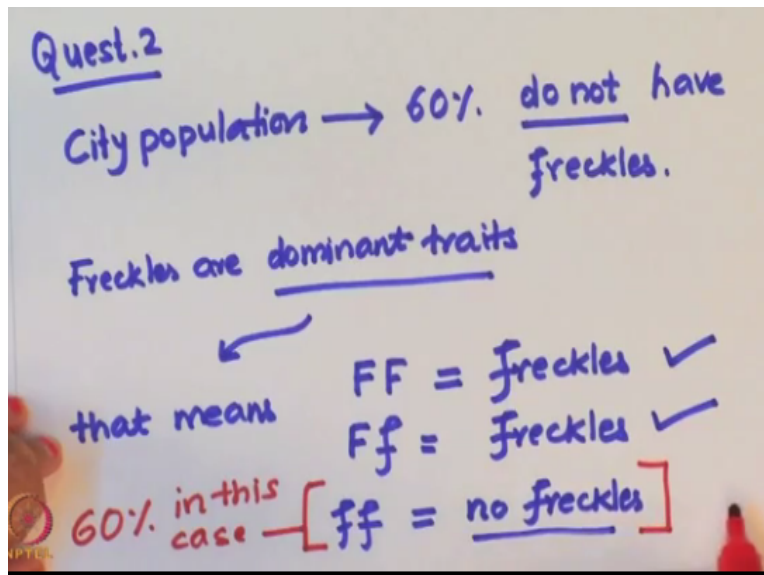 Quest.2
City population → 60% do not have
freckles.
Freckles are dominant traits
that means FF = freckles ✓
Ff = freckles ✓
60% in this case [ff = no freckles]
NPTEL